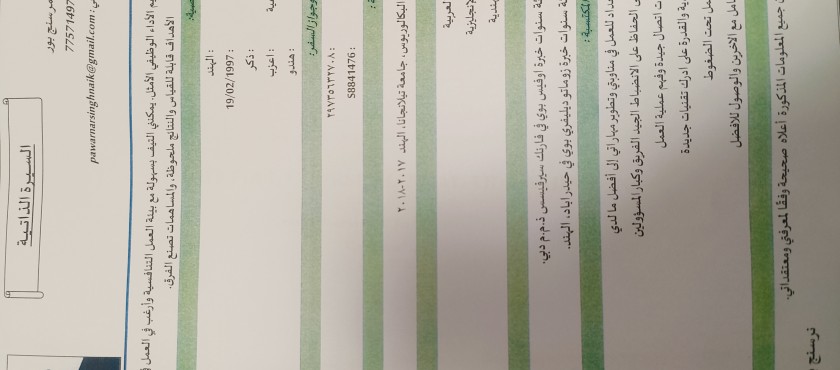 السيرة الذاتية
مرسنج بور
77571497
pawamarsinghnaik@gmail.com :
الأداء الوظيفي الأمثل. يمكنني التكيف بسهولة مع بيئة العمل التنافسية وأرغب في العمل
الأهداف قابلة للقياس والنتائج ملحوظة، والمساهمات تصنع الفرق.
: الهند
19/02/1997 :
: ذكر
: اعزب
: هندو
وجواز السفر:
٢٩٧٣٥٦٣٢٧٠٨ :
S8841476 :
البكالوريوس، جامعة تيلانجانا، الهند ٢٠١٧-٢٠١٨
لعربية
لإنجليزية
هندية
ة سنوات خبرة أوفيس بوي في فارنك سيرفيسس ذ.م.م دبي.
ة سنوات خبرة زوماتو ديليفري بوي في حيدر اباد، الهند.
المكتسبة :
داد للعمل في مناوبتي وتطوير مهاراتي إلى أفضل ما لدي
ى الحفاظ على الانضباط الجيد الفريق وكبار المسؤولين
ت اتصال جيدة وفهم عملية العمل
ية والقدرة على ادرك تقنيات جديدة
مل تحت الضغوط
امل مع الآخرين والوصول للأفضل
جميع المعلومات المذكورة أعلاه صحيحة وفقا لمعرفتي ومعتقداتي.
نرسنج